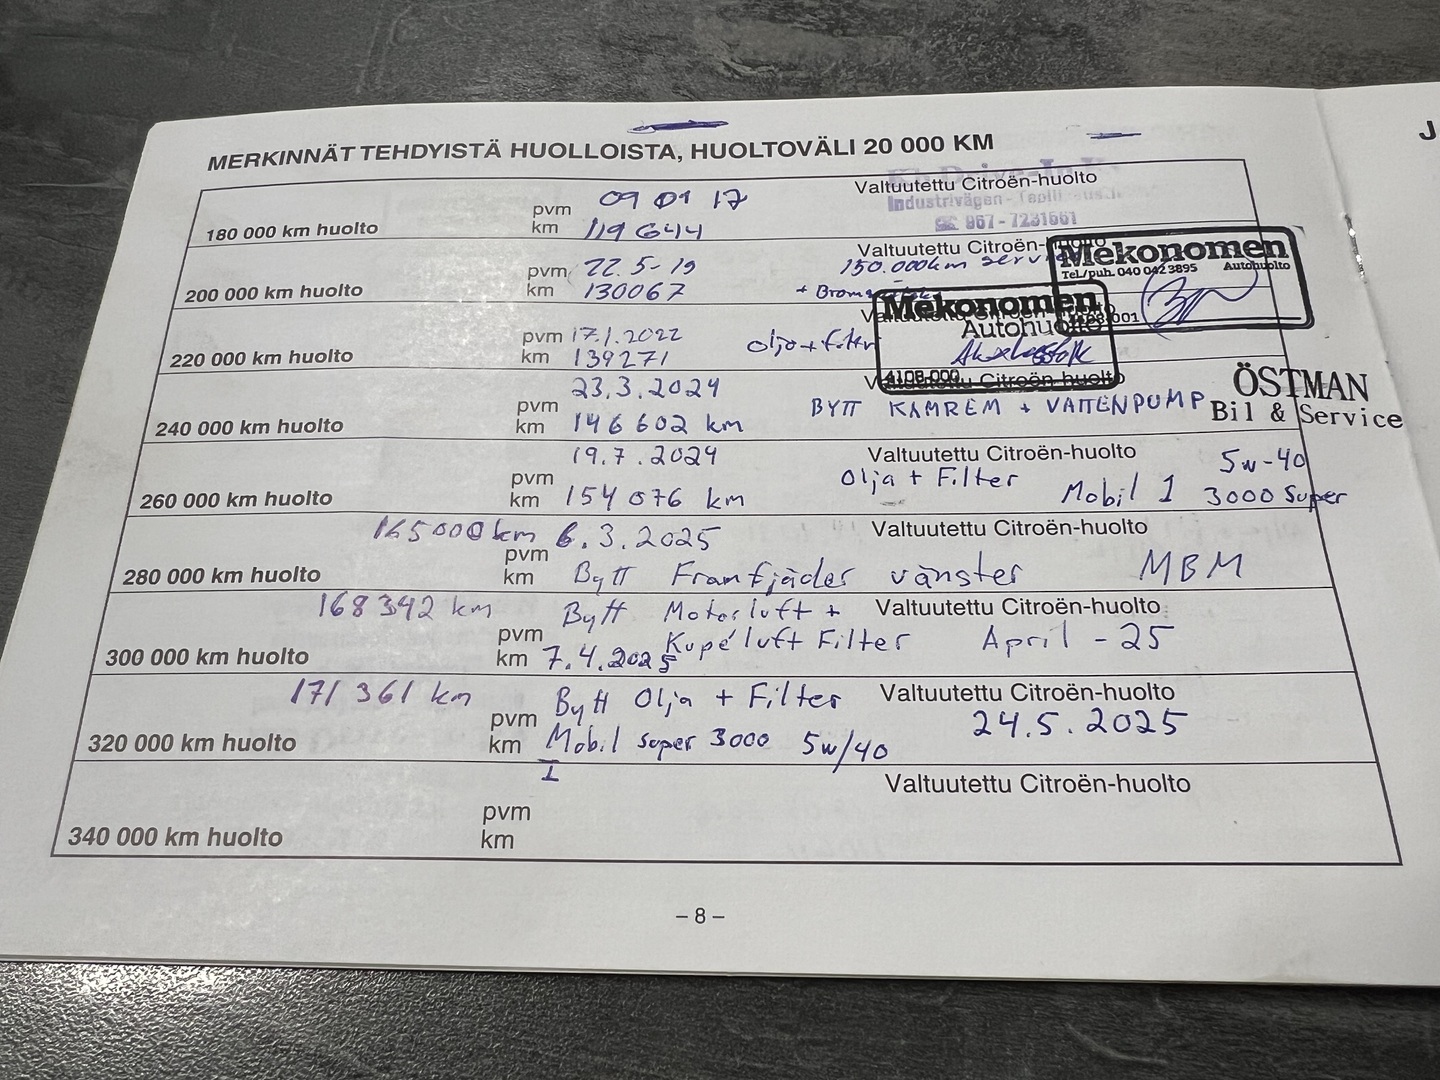 J
MERKINNÄT TEHDYISTÄ HUOLLOISTA, HUOLTOVÄLI 20 000 KM
180 000 km huolto
pvm 09 01 17
km 119644
Valtuutettu Citroën-huolto
Industrivägen
☎ 967-7231661
200 000 km huolto
pvm 22.5-19
km 130067
Valtuutettu Citroën-huolto
150.000km service
Mekonomen
Tel./puh. 040 042 3895 Autohuolto
220 000 km huolto
pvm 17.1.2022
km 139271
Olja + Filter
Valtuutettu Citroën-huolto
Mekonomen
Autohuolto
4108-000
240 000 km huolto
23.3.2024
pvm
km 146602 km
Valtuutettu Citroën-huolto
BYTT KAMREM + VATTENPUMP
ÖSTMAN
Bil & Service
260 000 km huolto
19.7.2024
pvm
km 154076 km
Valtuutettu Citroën-huolto
Olja + Filter Mobil 1
5w-40
3000 Super
280 000 km huolto
165000km 6.3.2025
pvm
km Bytt Framfjäder vänster MBM
Valtuutettu Citroën-huolto
300 000 km huolto
168342 km Bytt Motorluft +
Valtuutettu Citroën-huolto
pvm Kupéluft Filter April -25
km 7.4.2025
320 000 km huolto
171 361 km Bytt Olja + Filter
Valtuutettu Citroën-huolto
pvm 24.5.2025
km Mobil super 3000 5w/40
1
340 000 km huolto
pvm
km
Valtuutettu Citroën-huolto
– 8 –